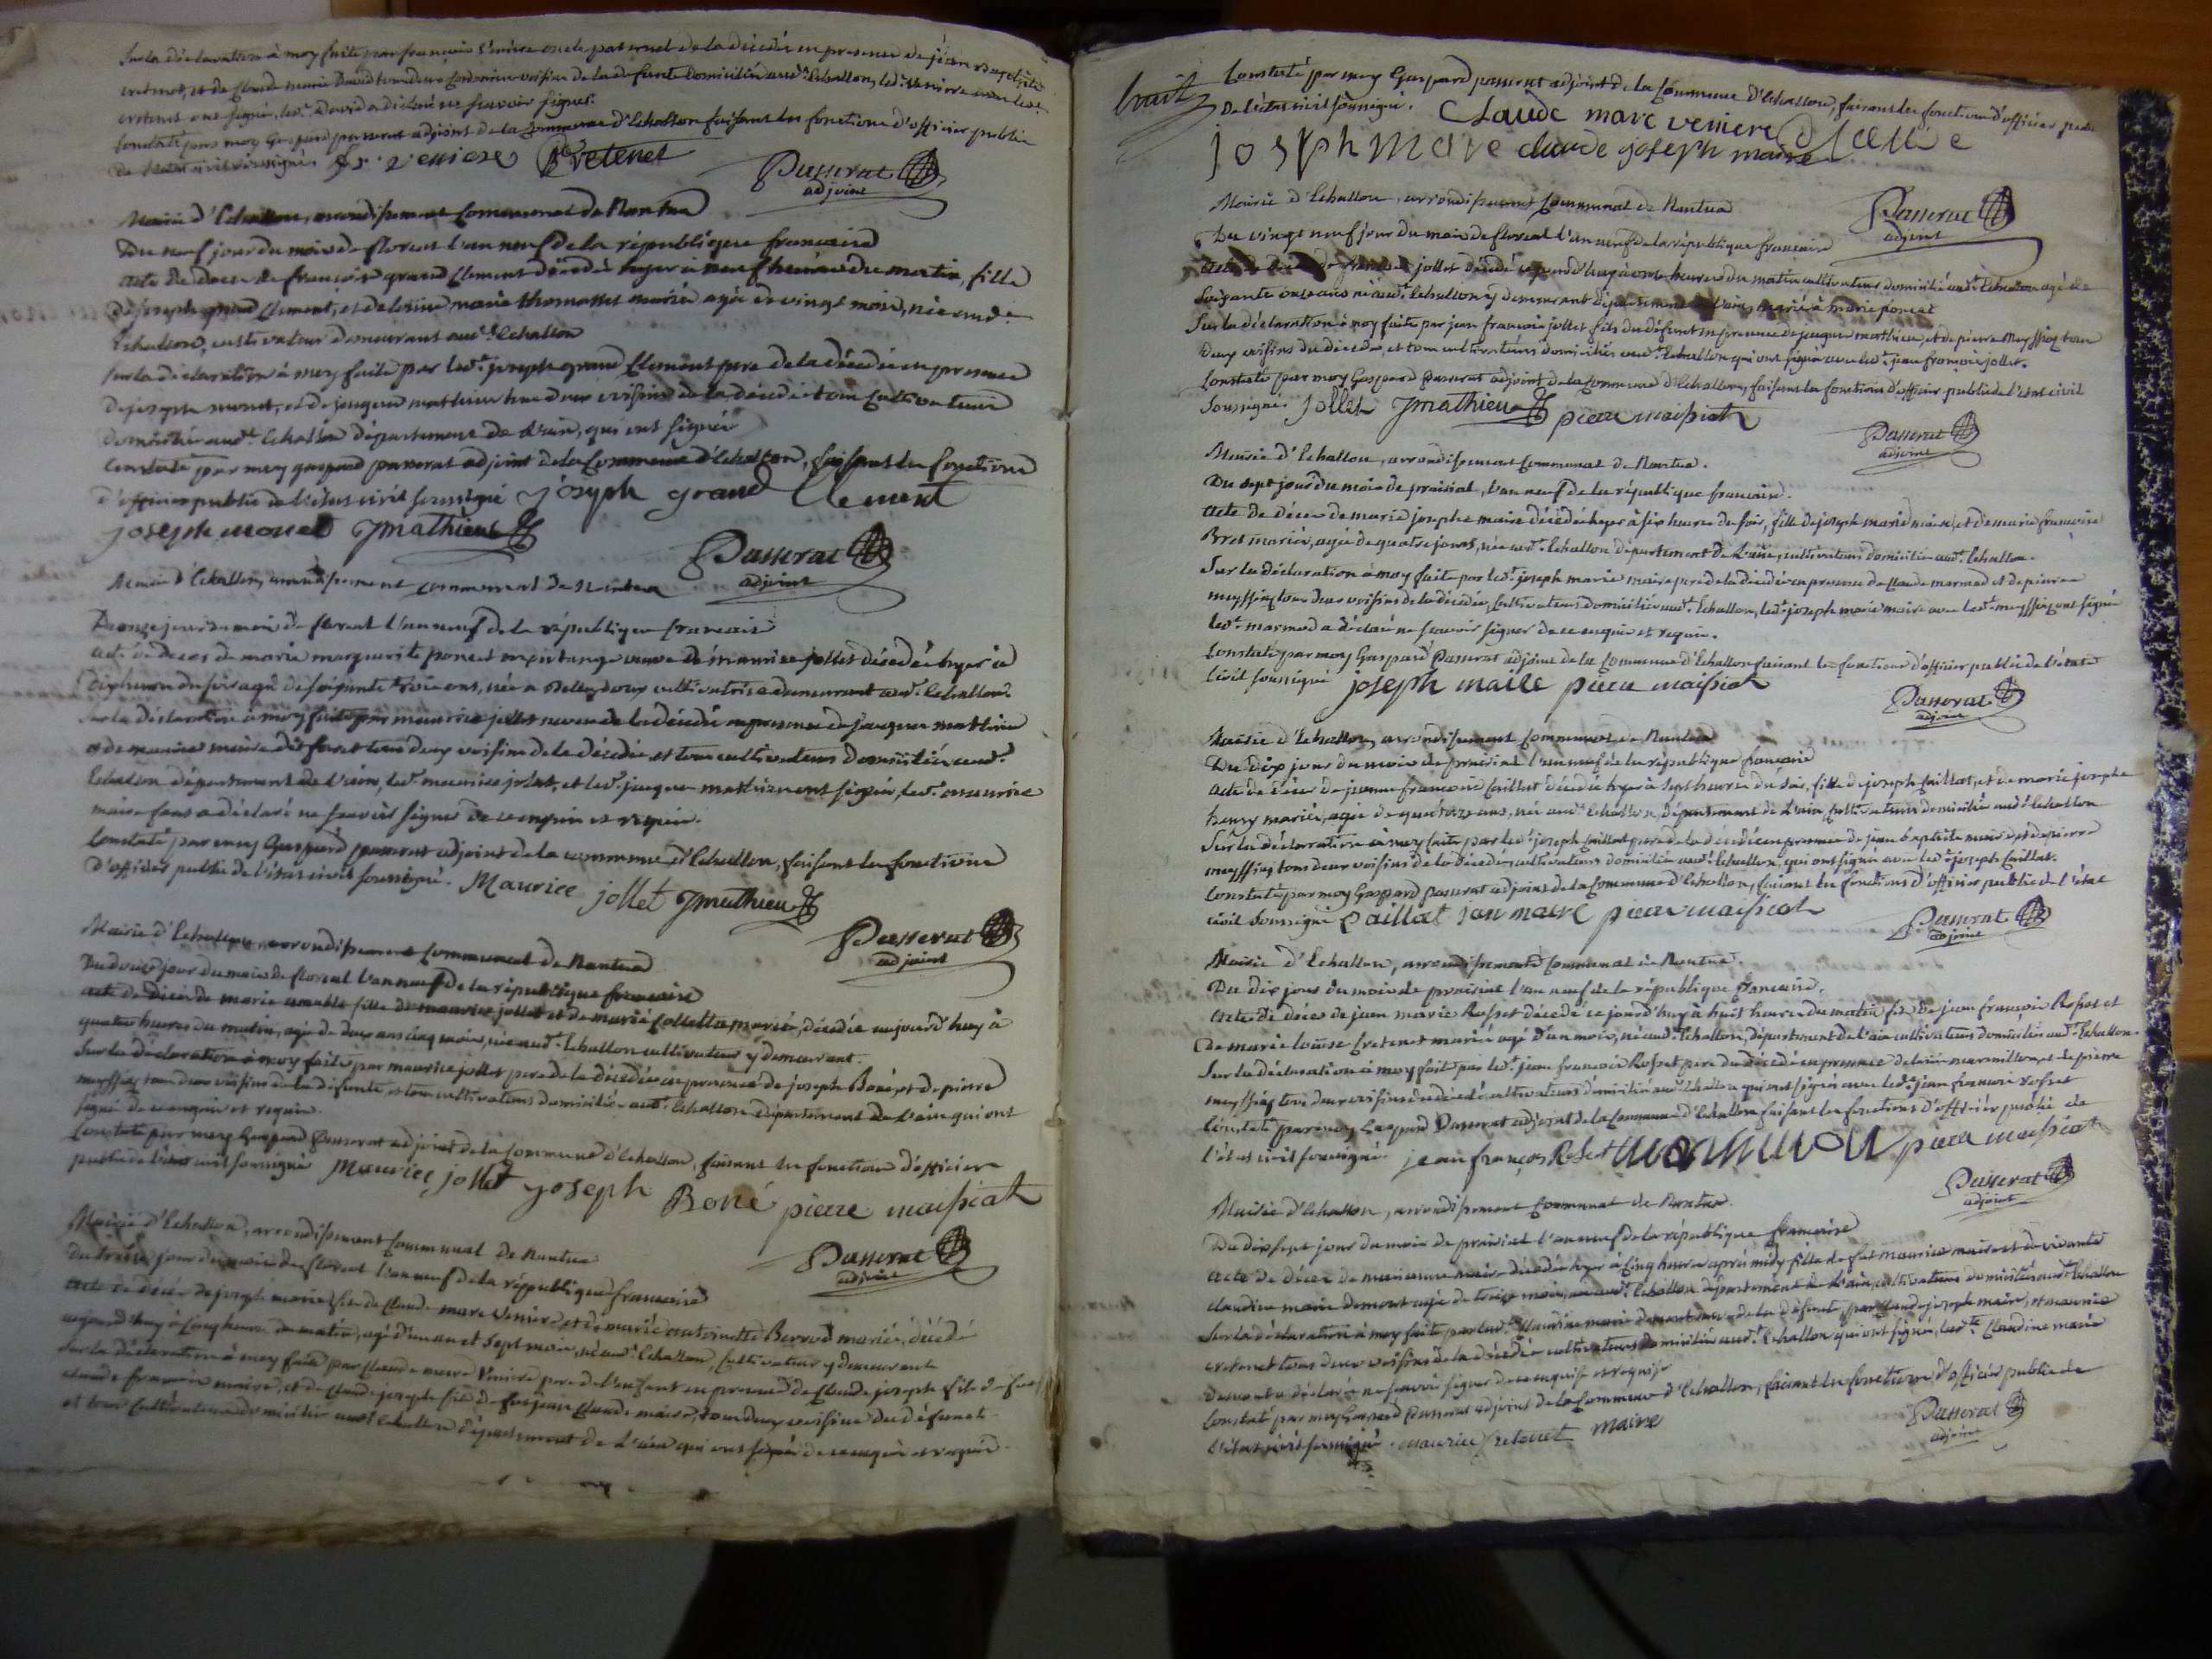 Sur la déclaration à moy faite par françois Veniere oncle paternel de la décédée en presence de jean baptiste
cretenet, et de Claude marie David tous deux voisins de la defunte domiciliés aud.t Echallon, led.t Veniere avec led.t
cretenet ont signé, led.t David a déclaré ne scavoir signer.
Constaté par moy Gaspard passerat adjoint de la commune d'Echallon faisant les fonctions d'officier public
de l'état civil soussigné. fr. Veniere Cretenet
Passerat
adjoint
Mairie d'Echallon, arrondissement Communal de Nantua
Du neuf jour du mois de floreal l'an neuf de la république française
acte de décès de françoise grand Clement décédée hyer à neuf heures du matin, fille
de joseph grand Clement, et de marie thomasset mariés agée de vingt mois, née aud.t
Echallon, cultivateur demeurant aud.t Echallon
sur la déclaration à moy faite par led.t joseph grand Clement pere de la décédée en presence
de joseph monet, et de jaques mathieu tous deux voisins de la décédée tous cultivateurs
domiciliés aud.t Echallon département de l'ain, qui ont signés
Constaté par moy gaspard passerat adjoint de la Commune d'Echallon, faisant les fonctions
d'officier public de l'état civil soussigné joseph grand Clement
joseph monet Jmathieu
Passerat
adjoint
Mairie d'Echallon, arrondissement communal de Nantua
Du onze jour du mois de floreal l'an neuf de la république française
acte de décès de marie marguerite poncet veuve de maurice jollet décédée hyer à
dix heures du soir agée de soixante trois ans, née à Belleydoux cultivatrice demeurant aud.t Echallon
Sur la déclaration à moy faite par maurice jollet neveu de la décédée en presence de jaques mathieu
et de maurice maire dit foret tous deux voisins de la décédée et tous cultivateurs domiciliés aud.t
Echallon département de l'ain, led.t maurice jollet, et led.t jaques mathieu ont signés, led.t maurice
maire a déclaré ne scavoir signer de ce enquis et requis.
Constaté par moy Gaspard passerat adjoint de la commune d'Echallon, faisant les fonctions
d'officier public de l'état civil soussigné. Maurice jollet Jmathieu
Passerat
adjoint
Mairie d'Echallon, arrondissement Communal de Nantua
Du douze jour du mois de floreal l'an neuf de la république française
acte de décès de marie amable fille de maurice jollet et de marie Collet mariés, décédée aujourd'huy à
quatre heures du matin, agée de deux ans cinq mois, née aud.t Echallon cultivateur y demeurant.
Sur la déclaration à moy faite par maurice jollet pere de la décédée en presence de joseph Boné, et de pierre
meyssiat tous deux voisins de la défunte, et tous cultivateurs domiciliés aud.t Echallon département de l'ain qui ont
signé de ce enquis et requis.
Constaté par moy Gaspard Passerat adjoint de la Commune d'Echallon, faisant les fonctions d'officier
public de l'état civil soussigné Maurice jollet joseph Boné pierre maissiat
Passerat
adjoint
Mairie d'Echallon, arrondissement Communal de Nantua
Du treize jour du mois de floreal l'an neuf de la république française
acte de décès de joseph marie fils de Claude marc Veniere, et de marie antoinette Berrod mariés, décédé
aujourd'huy à cinq heures du matin, agé d'un an et sept mois, né aud.t Echallon, cultivateur y demeurant
Sur la déclaration à moy faite par Claude marc Veniere pere de l'enfant en presence de Claude joseph fils de feu
claude françois maire, et de Claude joseph fils de feu jean Claude maire, tous deux voisins du défunct
et tous Cultivateurs domiciliés aud.t Echallon département de l'ain qui ont signés de ce enquis et requis.
huit
Constaté par moy Gaspard passerat adjoint de la Commune d'Echallon, faisant les fonctions d'officier public
De l'état civil soussigné. Claude marc veniere
joseph Mare claude joseph maire
Passerat
adjoint
Mairie d'Echallon, arrondissement Communal de Nantua
Du vingt neuf jour du mois de floreal l'an neuf de la république française
jollet décédé aujourd'huy à onze heures du matin cultivateur domicilié aud.t Echallon agé de
soixante onze ans né aud.t Echallon y demeurant département de l'ain, marié à marie poncet
Sur la déclaration à moy faite par jean françois jollet fils du défunt en presence de jaques mathieu, et de pierre Meyssiat tous
deux voisins du décédé, et tous cultivateurs domiciliés aud.t Echallon qui ont signé avec led.t jean françois jollet.
Constaté par moy Gaspard Passerat adjoint de la Commune d'Echallon, faisant les fonctions d'officier public de l'état civil
Soussigné. jollet Jmathieu pierre maissiat
Passerat
adjoint
Mairie d'Echallon, arrondissement Communal de Nantua.
Du sept jour du mois de prairial, l'an neuf de la république française.
Acte de décès de marie josephe maire décédée hyer à six heures du soir, fille de joseph marie maire, et de marie françoise
Bret mariés, agée de quatre jours, née aud.t Echallon département de l'ain, cultivateurs domiciliés aud.t Echallon.
Sur la déclaration à moy faite par led.t joseph marie maire pere de la décédée en presence de Claude marmod et de pierre
meyssiat tous deux voisins de la décédée, Cultivateurs domiciliés aud.t Echallon, led.t joseph marie maire avec led.t meyssiat ont signé
led.t marmod a déclaré ne scavoir signer de ce enquis et requis.
Constaté par moy Gaspard Passerat adjoint de la Commune d'Echallon faisant les fonctions d'officier public de l'état
Civil soussigné joseph maire pierre maissiat
Passerat
adjoint
Mairie d'Echallon, arrondissement Communal de Nantua
Du dix jour du mois de prairial l'an neuf de la république française
Acte de décès de jeanne françoise Caillat décédée hyer à sept heures du soir, fille de joseph Caillat, et de marie josephe
henry mariés, agée de quatorze ans, née aud.t Echallon, département de l'ain, cultivateurs domiciliés aud.t Echallon
Sur la déclaration à moy faite par led.t joseph Caillat pere de la décédée en presence de jean baptiste maire et de pierre
meyssiat tous deux voisins de la décédée cultivateurs domiciliés aud.t Echallon, qui ont signé avec led.t joseph Caillat.
Constaté par moy Gaspard Passerat adjoint de la Commune d'Echallon, faisant les fonctions d'officier public de l'état
civil soussigné Caillat jan maire pierre maissiat
Passerat
adjoint
Mairie d'Echallon, arrondissement Communal de Nantua.
Du dix jour du mois de prairial l'an neuf de la république française.
Acte de décès de jean marie Rosset décédé ce jourd'huy à huit heures du matin fils de jean françois Rosset et
de marie louise Cretenet mariés agé d'un mois, né aud.t Echallon, département de l'ain cultivateurs domiciliés aud.t Echallon.
Sur la déclaration à moy faite par led.t jean françois Rosset pere du décédé en presence de marmillon, et de pierre
meyssiat tous deux voisins du décédé cultivateurs domiciliés aud.t Echallon qui ont signés avec led.t jean françois rosset
Constaté par moy Gaspard Passerat adjoint de la Commune d'Echallon faisant les fonctions d'officier public de
l'état civil soussigné jean françois Roset marmillon pierre maissiat
Passerat
adjoint
Mairie d'Echallon, arrondissement Communal de Nantua.
Du dix sept jour du mois de prairial l'an neuf de la république française
Acte de décès de maire décédée hyer à cinq heures après midy fille de feu maurice maire et de vivante
claudine marie demont agée de treize mois, née aud.t Echallon département de l'ain, cultivateurs domiciliés aud.t Echallon
Sur la déclaration à moy faite par lad.te Claudine marie demont mere de la défunte, par Claude joseph maire, et maurice
cretenet tous deux voisins de la décédée cultivateurs domiciliés aud.t Echallon qui ont signé, lad.te Claudine marie
Demont a déclaré ne scavoir signer de ce enquise et requise
Constaté par moy Gaspard Passerat adjoint de la Commune d'Echallon, faisant les fonctions d'officier public de
l'état civil soussigné. maurice cretenet maire
Passerat
adjoint